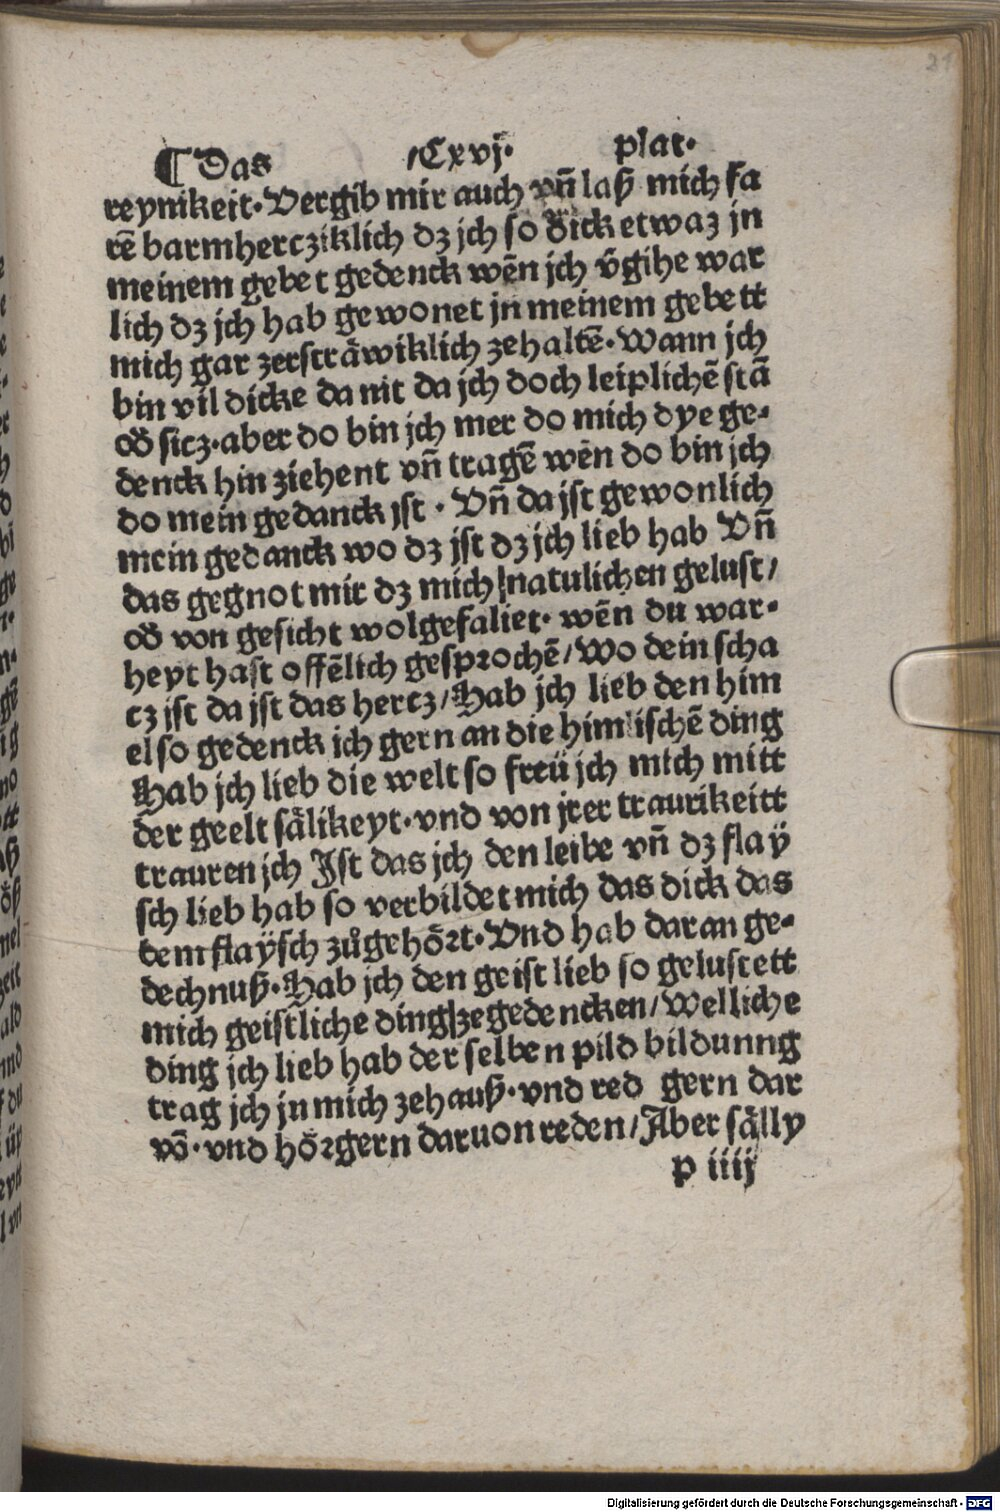 ¶ Das Cxvj. plat.
reynikeit. Vergib mir auch vñ laß mich fa
rẽ barmhercziklich dz jch so dick etwaz jn
meinem gebet gedenck wẽn jch v̈gihe war
lich dz jch hab gewonet jn meinem gebett
mich gar zerstråwiklich zehaltẽ. Wann jch
bin vil dicke da nit da jch doch leiplichẽ stã
od̾ sicz. aber do bin jch mer do mich dye ge-
denck hin ziehent vñ tragẽ wẽn do bin jch
do mein gedanck jst. Vñ da jst gewonlich
mein gedanck wo dz jst dz jch lieb hab Vñ
das gegnot mir dz mich natulichen gelust/
od̾ von gesicht wolgefaliet. wẽn du war-
heyt hast offẽlich gesprochẽ/Wo dein scha
cz jst da jst das hertz/Hab jch lieb den him
el so gedenck ich gern an die himlischẽ ding
Hab jch lieb die welt so freü jch mich mitt
der geelt sålikeyt. vnd von jrer traurikeitt
trauren jch Jst das jch den leibe vñ dz flaÿ
sch lieb hab so verbildet mich das dick das
dem flaÿsch zůgehört. Vnd hab daran ge-
dechnuß. Hab jch den geist lieb so gelustett
mich geistliche ding zegedencken/Welliche
ding jch lieb hab der selben pild bildunng
trag jch jn mich zehauß. vnd red gern dar
võ. vnd hörgern daruon reden/Aber sålly
p iiij
21
Digitalisierung gefördert durch die Deutsche Forschungsgemeinschaft - DFG